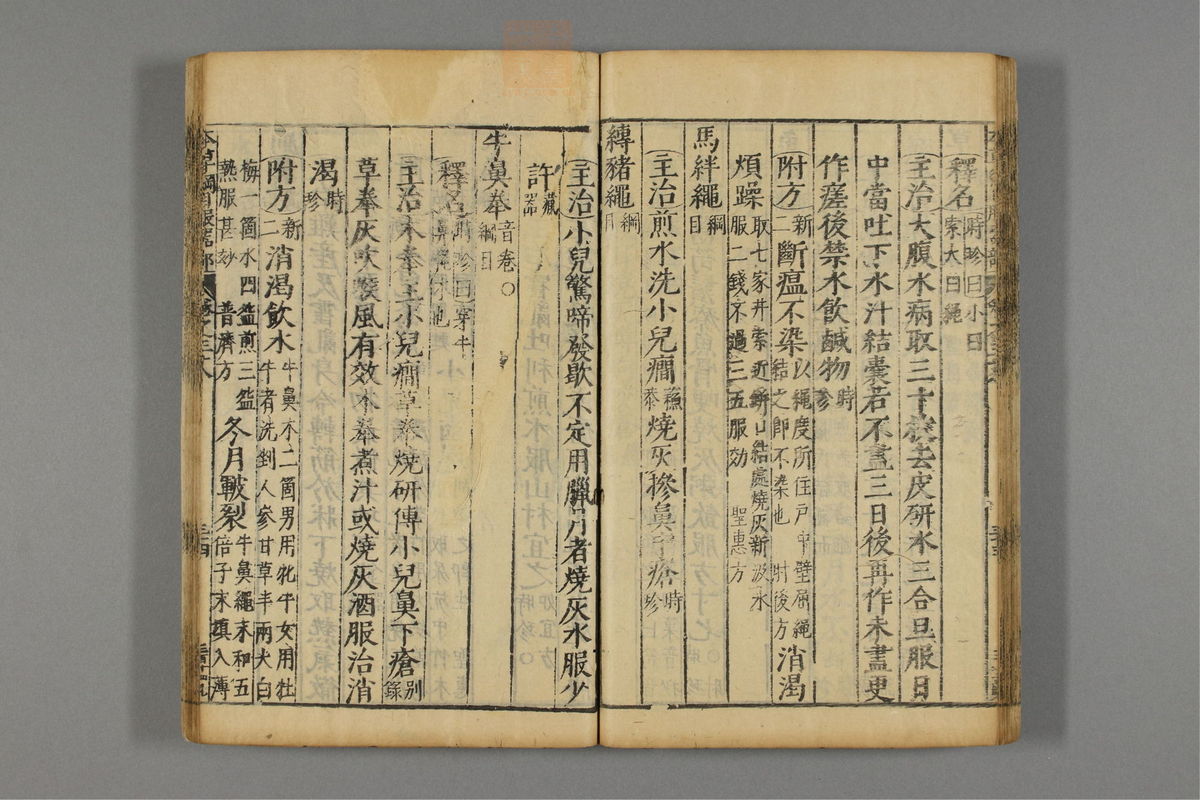 釋名時珍曰小曰索大曰繩
主治大腹水病取三十枚去皮研水三合旦服日
中當吐下水汁結囊若不盡三日後再作未盡更
作瘥後禁水飲鹹物時珍
附方新二斷瘟不染以繩度所住戶中壁屈繩結之即不染也肘後方消渴
煩躁取七家井索近缾口結處燒灰新汲水服二錢不過三五服效聖惠方
馬絆繩綱目
主治煎水洗小兒癇蘇恭燒灰摻鼻中瘡時珍
縛豬繩綱目
主治小兒驚啼發歇不定用臘月者燒灰水服少
許藏器
牛鼻桊音卷○綱目
釋名時珍曰穿牛鼻繩木也
主治木桊主小兒癇草桊燒研傅小兒鼻下瘡別錄
草桊灰吹喉風有效木桊煮汁或燒灰酒服治消
渴時珍
附方新二消渴飲水牛鼻木二箇男用牝牛女用牡牛者洗剉人參甘草半兩大白
梅一箇水四盌煎三盌熱服甚妙普濟方冬月皸裂牛鼻繩末和五倍子末填入薄
本草綱目服器部 卷之三十八